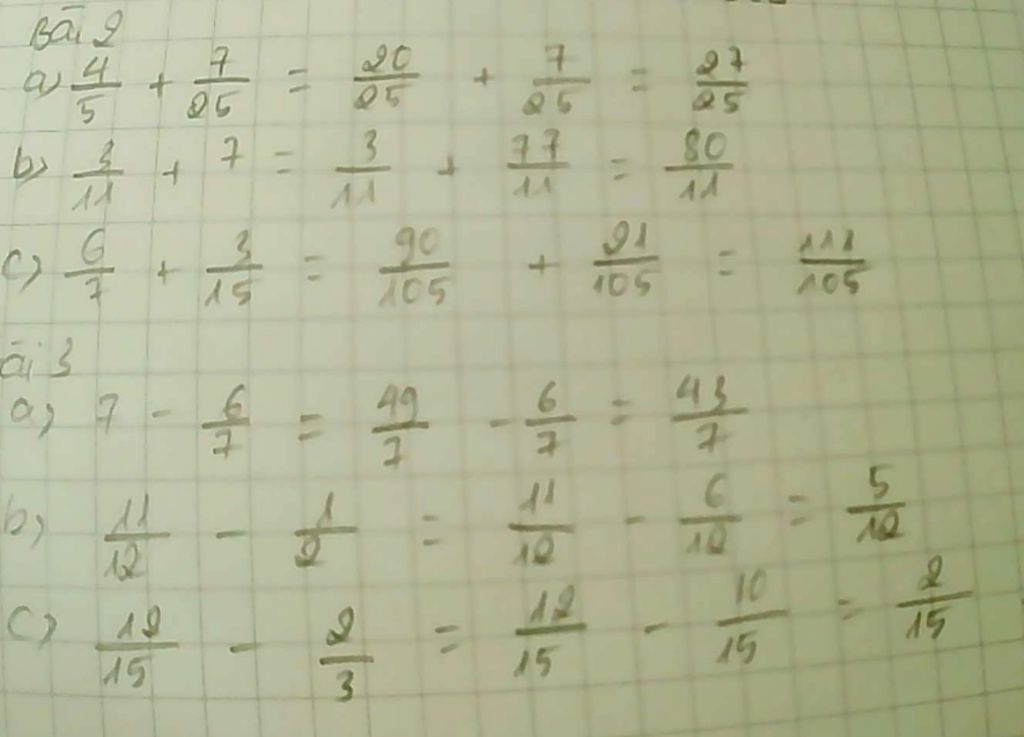 Bài 2
a) 4/5 + 7/25 = 20/25 + 7/25 = 27/25
b) 3/11 + 7 = 3/11 + 77/11 = 80/11
c) 6/7 + 3/15 = 90/105 + 21/105 = 111/105
ài 3
a) 7 - 6/7 = 49/7 - 6/7 = 43/7
b) 11/12 - 1/2 = 11/12 - 6/12 = 5/12
c) 12/15 - 2/3 = 12/15 - 10/15 = 2/15